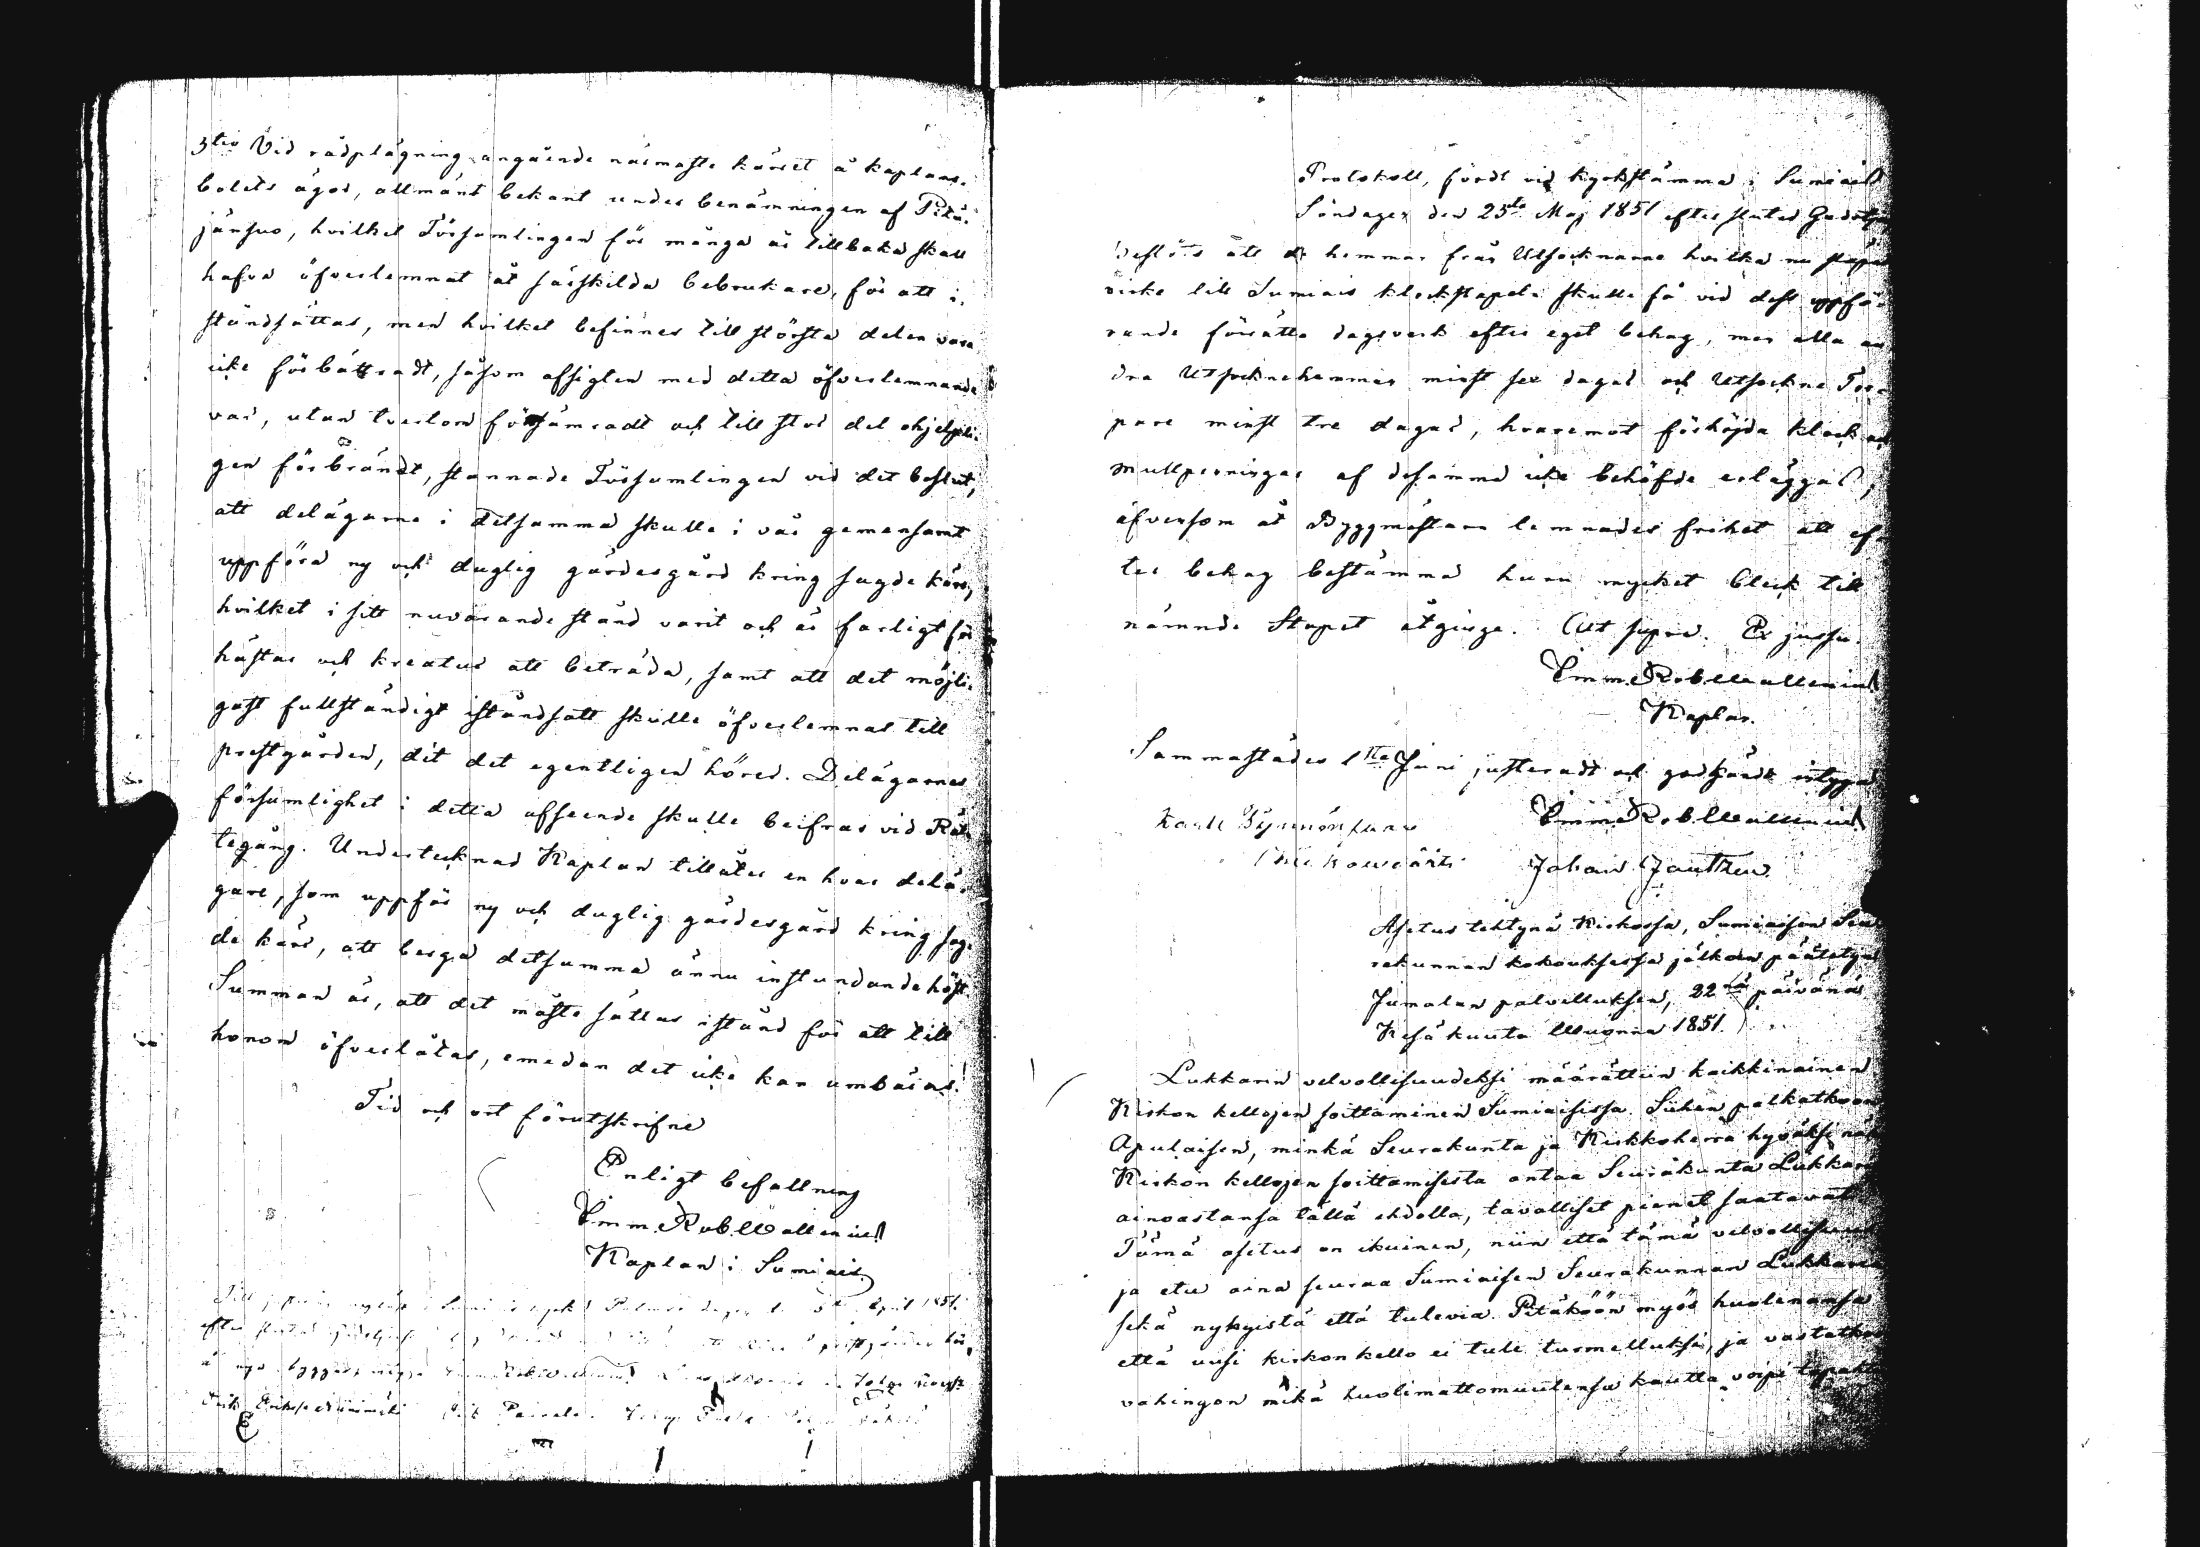 3tio Vid rådplägning angående närmaste kärret å kaplans-
bolets ägor, allmänt bekant under benämningen af Pitkä-
jänsuo, hvilket Församlingen för många år tillbaka skall
hafva öfverlemnat åt särskilda bebrukare, för att i-
ståndsättas, men hvilket befinnes till största delen vara
icke förbättradt, såsom afsigten med detta öfverlemnande
var, utan tvertom försämradt och till stor del ohjelpli-
gen förbrändt, stannade Församlingen vid det beslut,
att delägarne i detsamma skulle i vår gemensamt
uppföra ny och duglig gärdesgård kring sagde kärr,
hvilket i sitt nuvarande stånd varit och är farligt för
hästar och kreatur att beträda, samt att det möjli-
gast fullständigt iståndsatt skulle öfverlemnas till
prestgården, dit det egentligen hörer. Delägarnes
försumlighet i detta afseende skulle beifras vid Rät-
tegång. Undertecknad Kaplan tillåter en hvar delä-
gare, som uppför ny och duglig gärdesgård kring sag-
de kärr, att berga detsamma ännu instundande höst.
Summan är, att det måste sättas istånd för att till
honom öfverlåtas, emedan det icke kan umbäras.
Tid och ort förutskrifne
Enligt befallning
Emm. Rob. Wallenius
Kaplan i Sumiais
April 1851
efter
Erik
Protokoll, fördt vid kyrkstämma i Sumiais
Söndagen den 25te Maj 1851 efter slutad Gudstj
Beslöts att de hemman från Utsocknarne hvilka nu släpa
virke till Sumiais klockstapel skulle få vid dess uppfö-
rande förrätta dagsverk efter eget behag, men alla an
dra Utsockne hemman minst sex dagar och Utsockne Tor-
pare minst tre dagar, hvaremot förhöjda klock och
mullpenningar af desamma icke behöfde erläggas,
äfvensom åt Byggmästaren lemnades frihet att ef-
ter behag bestämma huru mycket bleck till
nämnde Stapel åtginge. Ut supra. Ex jussu.
Emm. Rob. Wallenius
Kaplan.
Sammastädes 1sta Juni justeradt och godkändt intygar
Emm. Rob. Wallenius
Johan
Asetus tehtynä Kirkossa, Sumiaisen Seu-
rakunnan kokouksessa jälkeen päätetyn
Jumalan palvelluksen, 22nä päivänä
Kesäkuuta Wuonna 1851.
Lukkarin velvollisuudeksi määrättiin kaikkinainen
Kirkon kellojen soittaminen Sumiaisissa. Siihen palkatkoon
Apulaisen, minkä Seurakunta ja Kirkkoherra hyväksi näk
Kirkon kellojen soittamisesta antaa Seurakunta Lukkar
ainoastansa tällä ehdolla, tavalliset pienet saatavat
Tämä asetus on ikuinen, niin että tämä velvollisuus
ja etu aina seuraa Sumiaisen Seurakunnan Lukkaria
sekä nykyistä että tulevia. Pitäköön myös huolenansa
että uusi kirkon kello ei tule turmelluksi, ja vastatkoo
vahingon mikä huolimattomuutensa kautta voipi tapaht